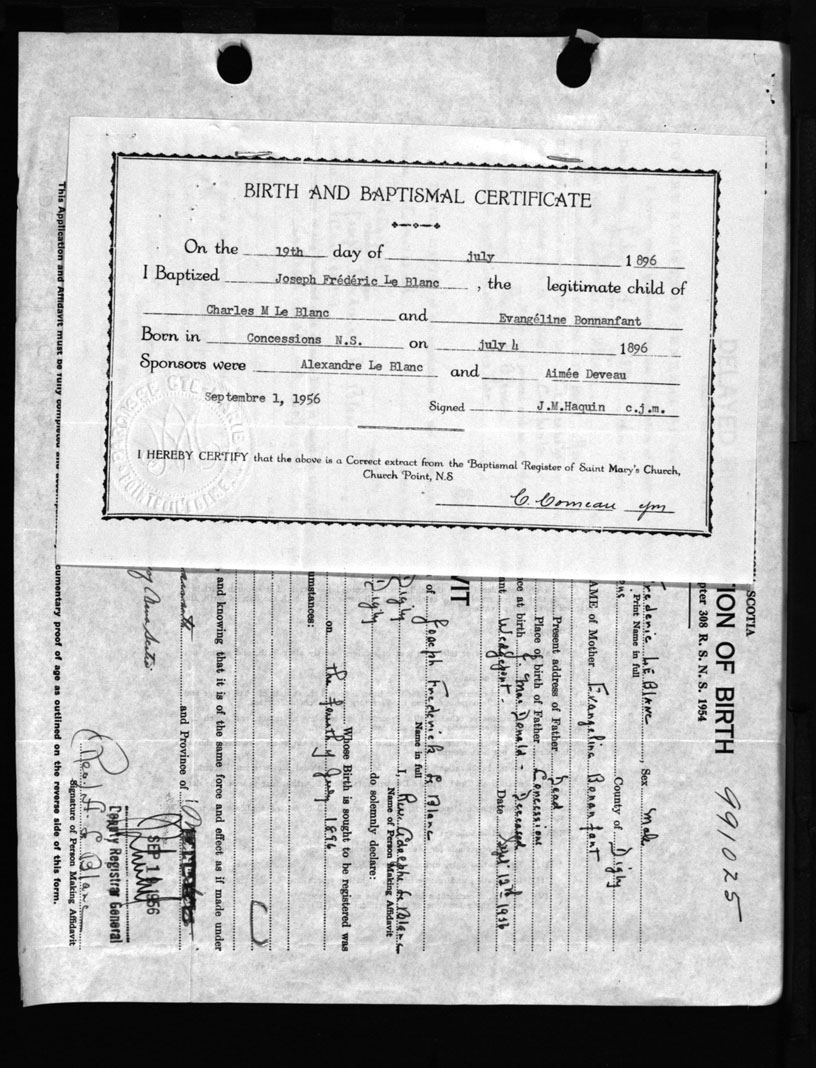 BIRTH AND BAPTISMAL CERTIFICATE
On the 19th day of july 1896
I Baptized Joseph Frédéric Le Blanc , the legitimate child of
Charles M Le Blanc and Evangéline Bonnanfant
Born in Concessions N.S. on july 4 1896
Sponsors were Alexandre Le Blanc and Aimée Deveau
Septembre 1, 1956 Signed J.M.Haquin c.j.m.
I HEREBY CERTIFY that the above is a Correct extract from the Baptismal Register of Saint Mary's Church,
Church Point, N.S
C. Comeau cjm
SCOTIA
TION OF BIRTH
pter 308 R. S. N. S. 1954
991025
Frederic LeBlanc , Sex Male
Print Name in full
County of Digby
AME of Mother Evangeline Bonanfant
Present address of Father Dead
Place of birth of Father Concessions
ce at birth Donald - Deceased
ant Wedgeport. Date Sept 12th 1956
VIT
of Joseph Frederick Le Blanc
Name in full
Digby I, Rev. Adolphe Le Blanc
Name of Person Making Affidavit
Digby do solemnly declare:
Whose Birth is sought to be registered was
on the fourth of July 1896
umstances:
, and knowing that it is of the same force and effect as if made under
and Province of
SEP 1 1956
Deputy Registrar General
Le Blanc
Signature of Person Making Affidavit
This Application and Affidavit must be fully completed and
cumentary proof of age as outlined on the reverse side of this form.